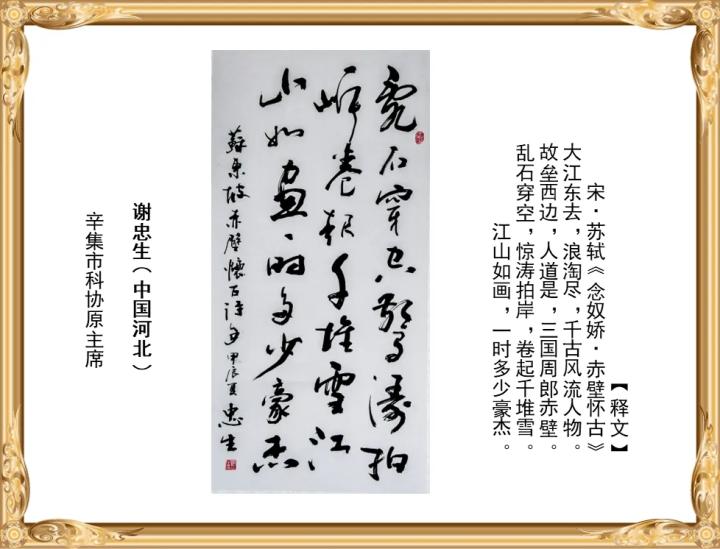 【释文】
宋·苏轼《念奴娇·赤壁怀古》
大江东去，浪淘尽，千古风流人物。
故垒西边，人道是，三国周郎赤壁。
乱石穿空，惊涛拍岸，卷起千堆雪。
江山如画，一时多少豪杰。
乱石穿空驚濤拍
岸卷起千堆雪江
山如画一时多少豪杰
蘇東坡赤壁懷古詩句甲辰夏忠生
谢忠生（中国河北）
辛集市科协原主席